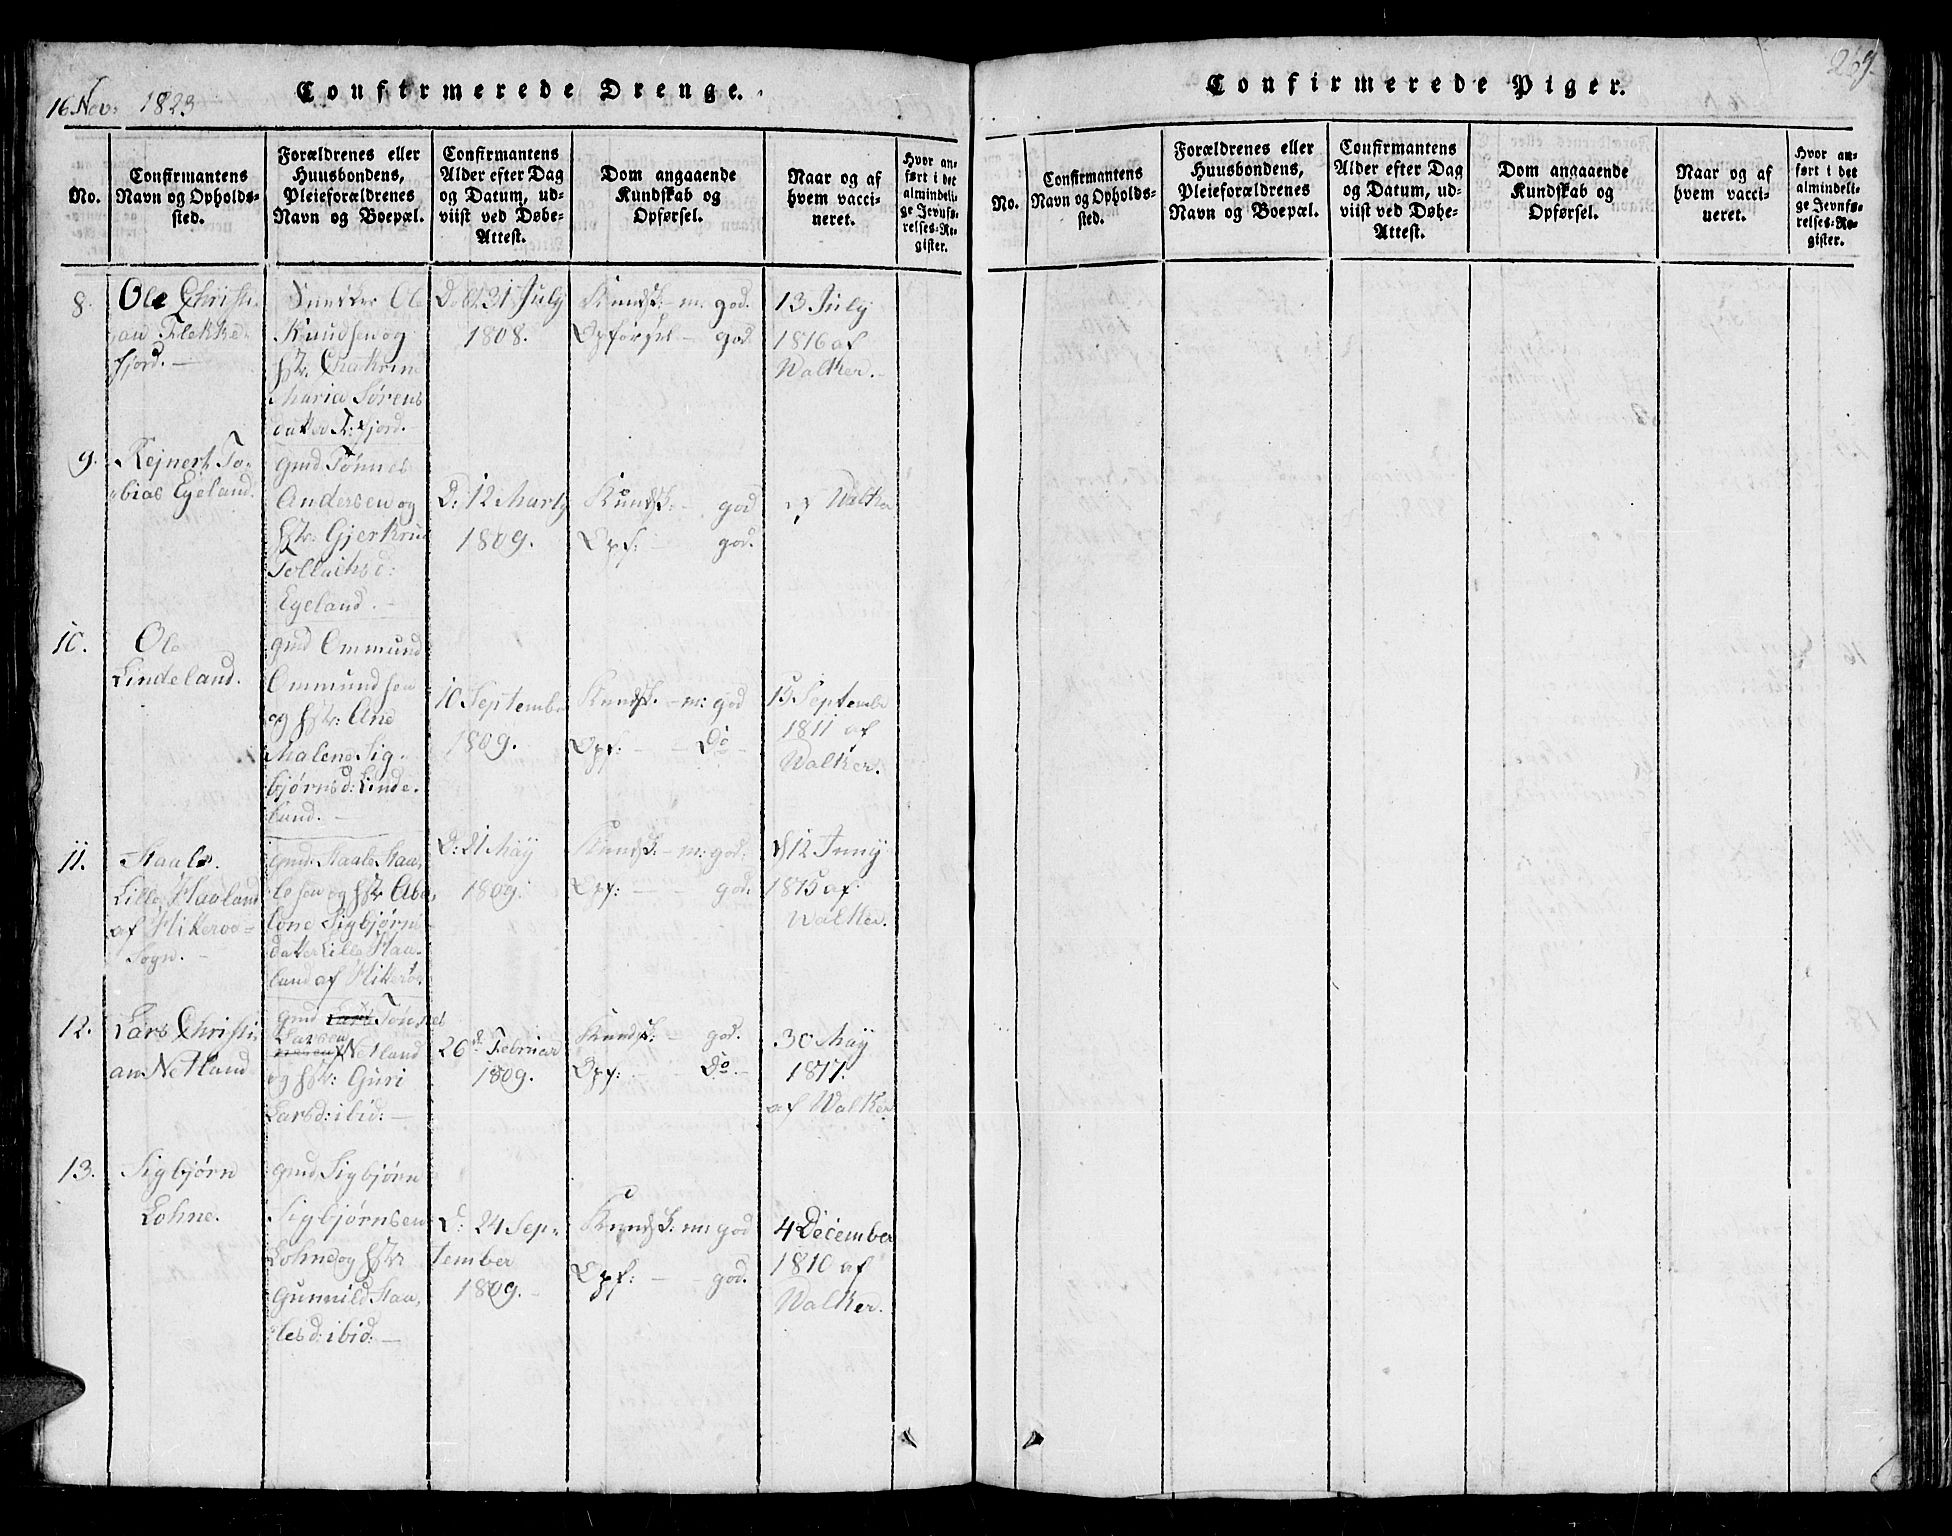 16 Nov: 1823
Confirmerede Drenge.
No.
Confirmantens
Navn og Opholds-
sted.
Forældrenes eller
Huusbondens,
Pleieforældrenes
Navn og Boepæl.
Confirmantens
Alder efter Dag
og Datum, ud-
viist ved Døbe-
Attest.
Dom angaaende
Kundskab og
Opførsel.
Naar og af
hvem vacci-
neret.
Hvor an-
ført i det
almindeli-
ge Jevnfø-
relses-Re-
gister.
8.
Ole Christi-
an Flekke-
fjord. -
Ole
Knudsen og
Hstr:
Maria Sørens
datter Fl:fjord.
D: 31 July
1808.
Kundsk: - m: god.
Opførsel - god.
13 July
1816 af
Walker. -
9.
Rejnert To-
bias Egeland.
gmd Tønnes
Andersen og
Hstr: Gjertrud
Tollachsd:
Egeland. -
D: 12 Marty
1809.
Kundsk: - god
Opf: - god.
Walker
10.
Ole
Lindeland.
gmd Ommund
Ommundsen
og Hstr: Ane
Malene Sig-
bjørnsd: Linde-
land. -
10 September
1809.
Kundsk. - m: god
Opf: - - Do -
15 Septembr
1811 af
Walker.
11.
Staale
Lille Haaland
af Hiterøe
Sogn. -
gmd. Staale Staa-
lesen og Hstr Abe-
lone Sigbjørns-
datter Lille Haa-
land af Hiterøe.
D: 21 May
1809.
Kundsk: - m: god.
Opf: - - god.
12 Juny
1815 af
Walker.
12.
Lars Christi-
an Netland
gmd Lars Tønnes
Larsen
Netland
og Hstr: Guri
Larsd: ibid: -
26 Februar
1809.
Kundsk: - god.
Opf: - Do. -
30 May
1817.
af Walker
13.
Sigbjørn
Lohne.
gmd Sigbjørn
Sigbjørnsen
Lohne og Hstr:
Gunnild Staa-
lesd: ibid: -
D: 24 Sep-
tember
1809. -
Kundsk: m: god
Opf: - - god.
4 December
1810 af
Walker.
269.
Confirmerede Piger.
No.
Confirmantens
Navn og Opholds-
sted.
Forældrenes eller
Huusbondens,
Pleieforældrenes
Navn og Boepæl.
Confirmantens
Alder efter Dag
og Datum, ud-
viist ved Døbe-
Attest.
Dom angaaende
Kundskab og
Opførsel.
Naar og af
hvem vacci-
neret.
Hvor an-
ført i det
almindeli-
ge Jevnfø-
relses-Re-
gister.